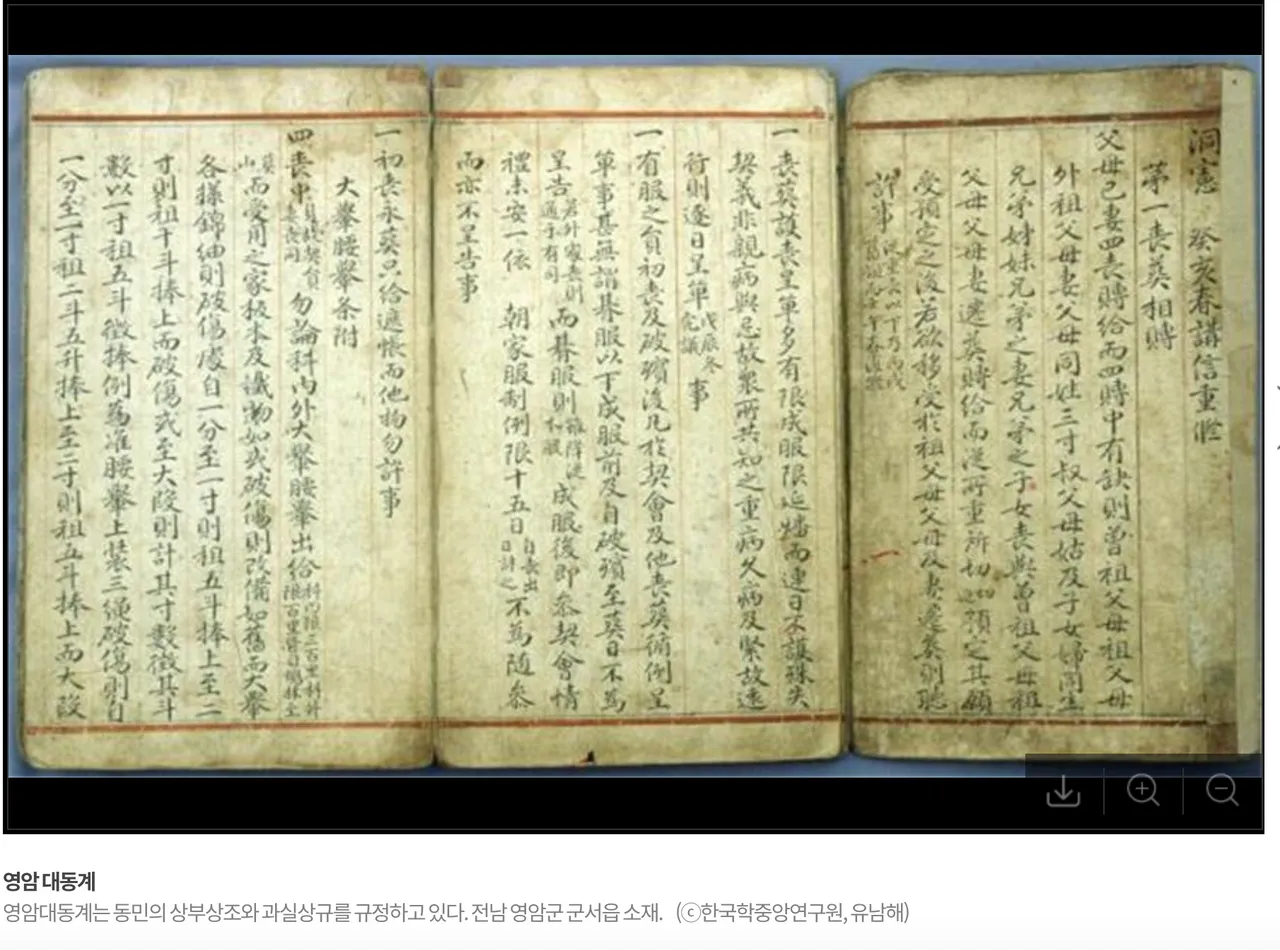 洞憲 癸亥春講信重修
第一喪葬相賻
父母己妻四喪賻給而四賻中有缺則曾祖父母祖父母
外祖父母妻父母同姓三寸叔父母姑及子女婦同生
兄弟姉妹兄弟之妻兄弟之子女喪與曾祖父母祖
父母父母妻遷葬賻給而從所重所切預定其願
受預定之後若欲移受於祖父母父母及妻遷葬則聽
許事
一喪葬護喪呈單多有限成服限近墦而連日不護殊失
契義非親病與忌故衆所共知之重病父病及緊故逐
行則逐日呈單戊辰冬完議事
一有服之員初喪及破殯後凡於契會及他喪葬循例呈
單事甚無謂朞服以下成服前及自破殯至葬日不爲
呈告若外家喪則通于有司而朞服則雖降從成服後卽參契會情
禮未安一依 朝家服制例限十五日自喪出日計之不爲隨參
而亦不呈告事
一初喪永葬只給遮帳而他物勿許事
大轝腰轝条附
四喪中勿論科內外大轝腰轝出給
而受用之家板本及讖物如或破傷則改備如舊而大轝
各樣錦紬則破傷處自一分至一寸則租五斗捧上至二
寸則租十斗捧上而破傷或至大段則計其寸數徵其斗
數以一寸租五斗徵捧例爲准腰轝上裝三綠破傷則自
一分至一寸租二斗五升捧上至二寸則租五斗捧上而大段
영암 대동계
영암대동계는 동민의 상부상조와 과실상규를 규정하고 있다. 전남 영암군 군서읍 소재. (ⓒ한국학중앙연구원, 유남해)